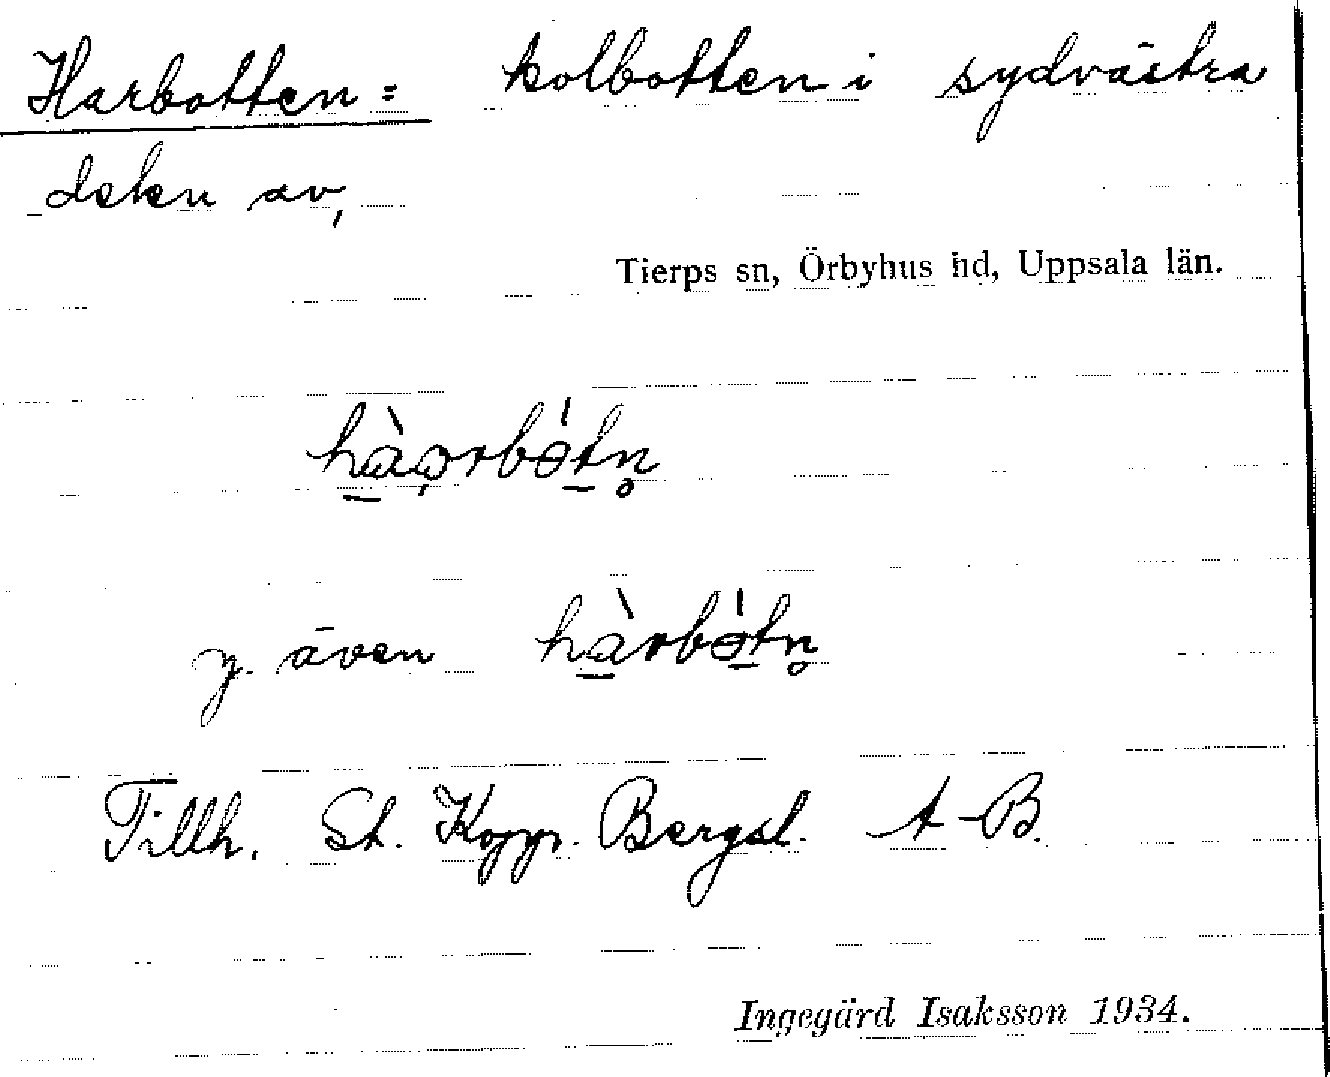 Harbotten = kolbotten i sydvästra
delen av,
Tierps sn, Örbyhus hd, Uppsala län.
y. även
Tillh. St. Kopp. Bergsl. A-B.
Ingegärd Isaksson 1934.